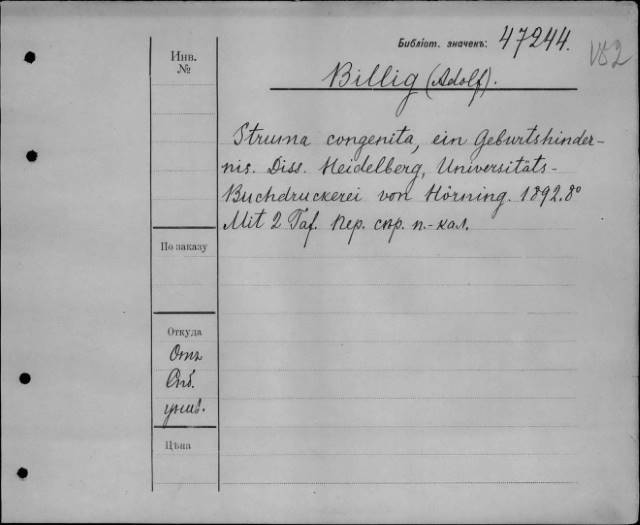 Библіот. значекъ: 47244.
VB2
Инв.
№
Billig (Adolf).
Struma congenita, ein Geburtshinder-
nis. Diss. Heidelberg, Universitäts-
Buchdruckerei von Hörning. 1892. 8°
Mit 2 Taf. Пер. скр. п.-кал.
По заказу
Откуда
Отъ
Спб.
унив.
Цѣна